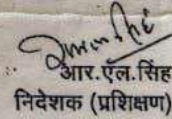 आर.एल.सिंह
निदेशक (प्रशिक्षण)